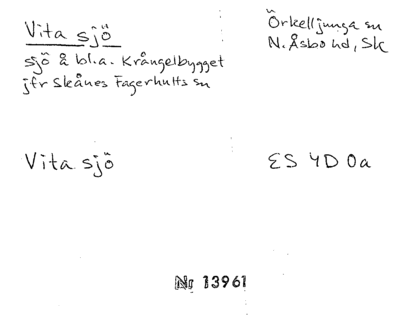 Vita sjö
Örkelljunga sn
N. Åsbo hd, Sk
sjö å bl.a. Krångelbygget
jfr Skånes Fagerhults sn
Vita sjö
ES 4D 0a
Nr 13961